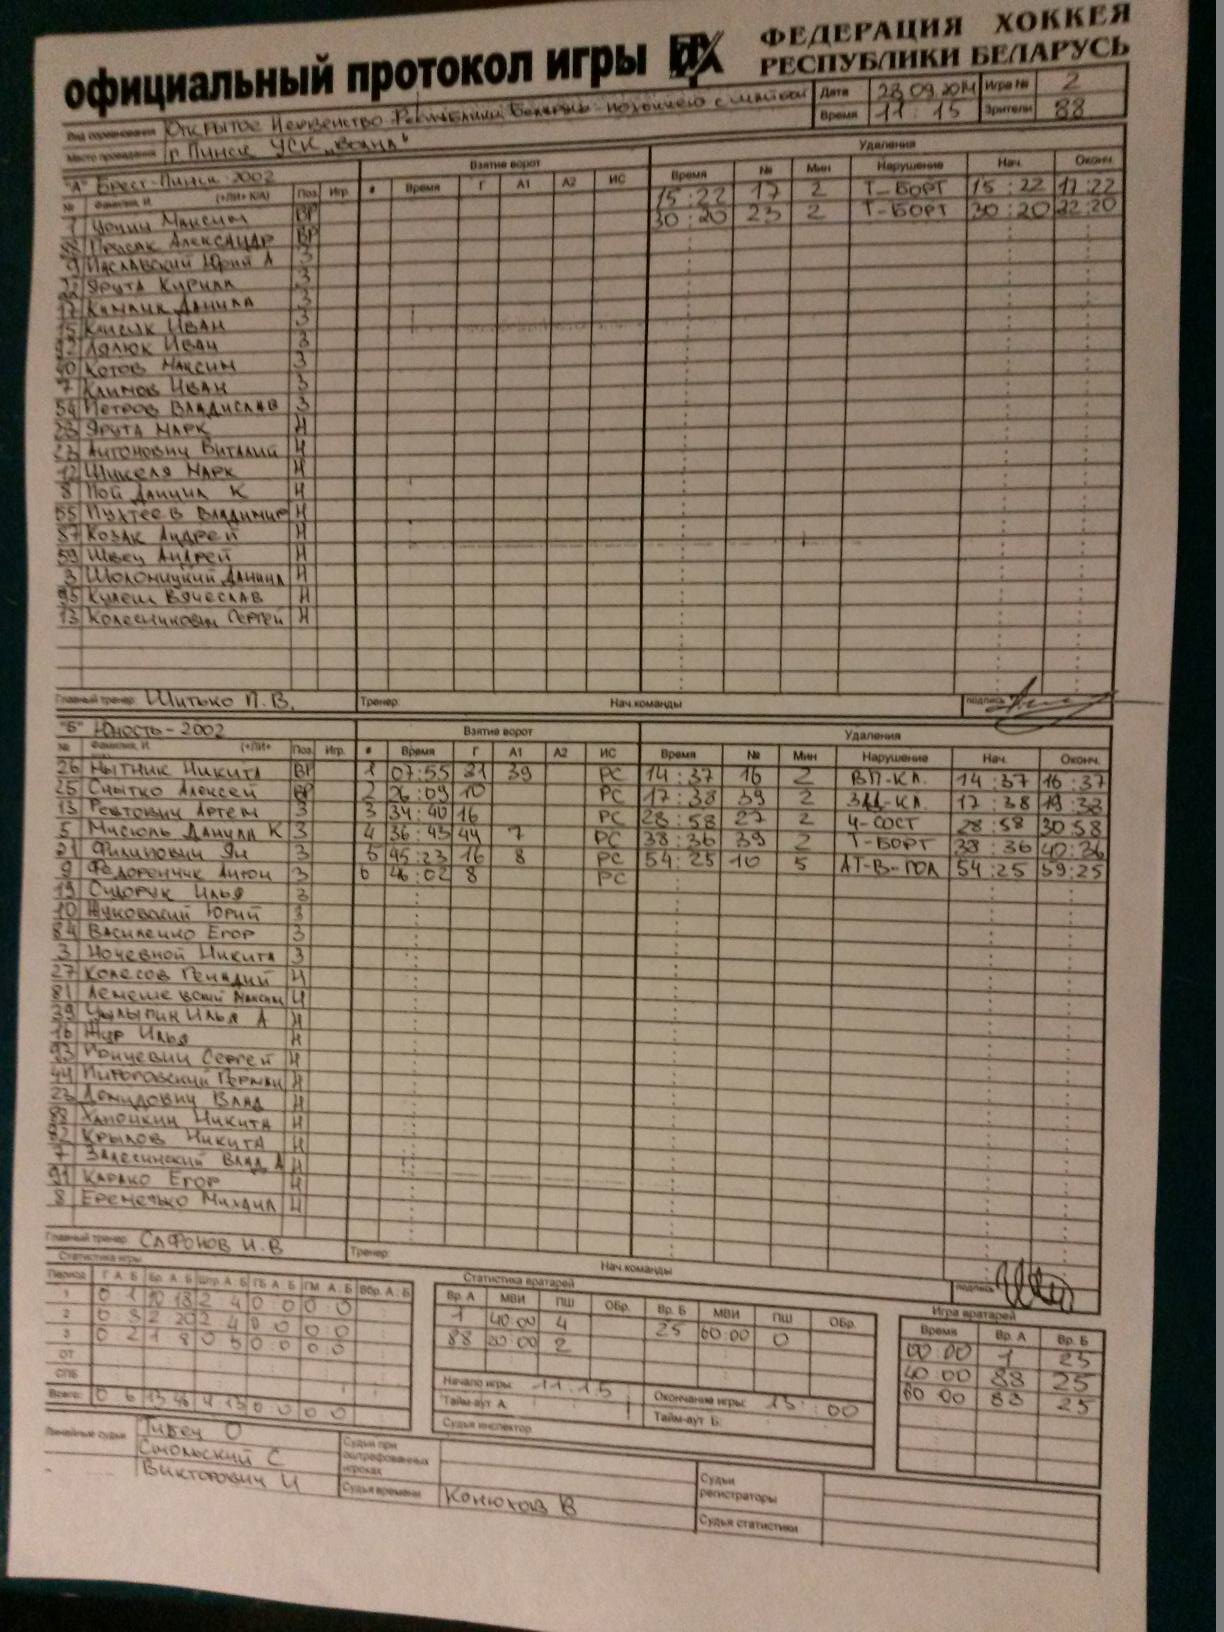 официальный протокол игры
ФЕДЕРАЦИЯ ХОККЕЯ
РЕСПУБЛИКИ БЕЛАРУСЬ
Вид соревнования Открытое Первенство Республики Беларусь по хоккею с шайбой Дата 28.09.2014 Игра № 2
Место проведения г. Пинск УСК „Волна" Время 11:15 Зрители 88
"А" Брест-Пинск-2002 Взятие ворот Удаления
№ Фамилия, И. Поз. Игр. # Время Г А1 А2 ИС Время № Мин Нарушение Нач. Оконч.
1 Максим ВР 15:22 17 2 Т-БОРТ 15:22 17:22
88 Александр ВР 30:20 23 2 Т-БОРТ 30:20 32:20
9 Юрий А З
Ярута Кирилл З
17 Данила З
15 Иван З
92 Лялюк Иван З
90 Котов Максим З
7 Климов Иван З
54 Петров Владислав З
28 Ярута Марк Н
23 Антонович Виталий Н
12 Шикеля Марк Н
8 Пой Даниил К Н
55 Пухтеев Владимир Н
87 Козак Андрей Н
59 Швец Андрей Н
3 Шоломицкий Данила Н
95 Кулеш Вячеслав Н
13 Колесникович Сергей Н
Главный тренер: Шитько П.В. Тренер: Нач.команды подпись
"Б" Юность-2002 Взятие ворот Удаления
№ Фамилия, И. Поз. Игр. # Время Г А1 А2 ИС Время № Мин Нарушение Нач. Оконч.
26 Мытник Никита ВР 1 07:55 21 39 РС 14:37 16 2 ВП-КЛ. 14:37 16:37
25 Смытко Алексей ВР 2 26:09 10 РС 17:38 39 2 ЗАД-КЛ. 17:38 19:38
13 Ревтович Артем З 3 34:40 16 РС 28:58 27 2 Ч-СОСТ 28:58 30:58
5 Мисюль Данила К З 4 36:45 44 7 РС 38:36 39 2 Т-БОРТ 38:36 40:36
21 Филипович Ян З 5 45:23 16 8 РС 54:25 10 5 АТ-В-ГОЛ 54:25 59:25
9 Федоренчик Антон З 6 46:02 8 РС
19 Сидорук Илья З
10 Жуковский Юрий З
84 Василенко Егор З
3 Ночевной Никита З
27 Колесов Геннадий Н
81 Лемешевский Максим Н
39 Цулыпин Илья А Н
16 Жур Илья Н
93 Сергей Н
44 Пироговский Герман Н
23 Демидович Влад Н
88 Хапонкин Никита Н
82 Крылов Никита Н
7 Залесинский Влад А Н
91 Карако Егор Н
8 Еременько Михаил Н
Главный тренер: Сафонов И.В Тренер: Нач.команды подпись
Статистика игры Статистика вратарей Игра вратарей
Период Г А.Б Бр. А.Б Штр. А.Б ГБ А.Б ГМ А.Б Вбр. А.Б
1 0 1 10 18 2 4 0 0 0 0
2 0 3 2 20 2 4 0 0 0 0
3 0 2 1 8 0 5 0 0 0 0
ОТ
СПБ
Всего: 0 6 13 46 4 13 0 0 0 0
Вр. А МВИ ПШ ОБр. Вр. Б МВИ ПШ ОБр.
1 40:00 4 25 60:00 0
88 20:00 2
Время Вр. А Вр. Б
00 00 1 25
40 00 88 25
60 00 88 25
Начало игры: 11:15 Окончание игры: 13:00
Тайм-аут А: Тайм-аут Б:
Судья инспектор
Линейные судьи Тивец О
Смольский С
Викторович И
Судьи при оштрафованных игроках
Судья времени Конюхов В
Судьи регистраторы
Судья статистики